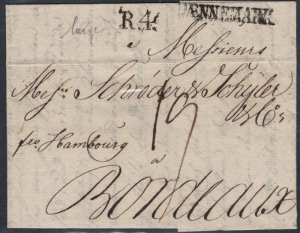 R.4. DENNEMARK
à Messieurs
Mess. Schröder & Schÿler
& Co.
fro Hambourg
à
Bordeaux